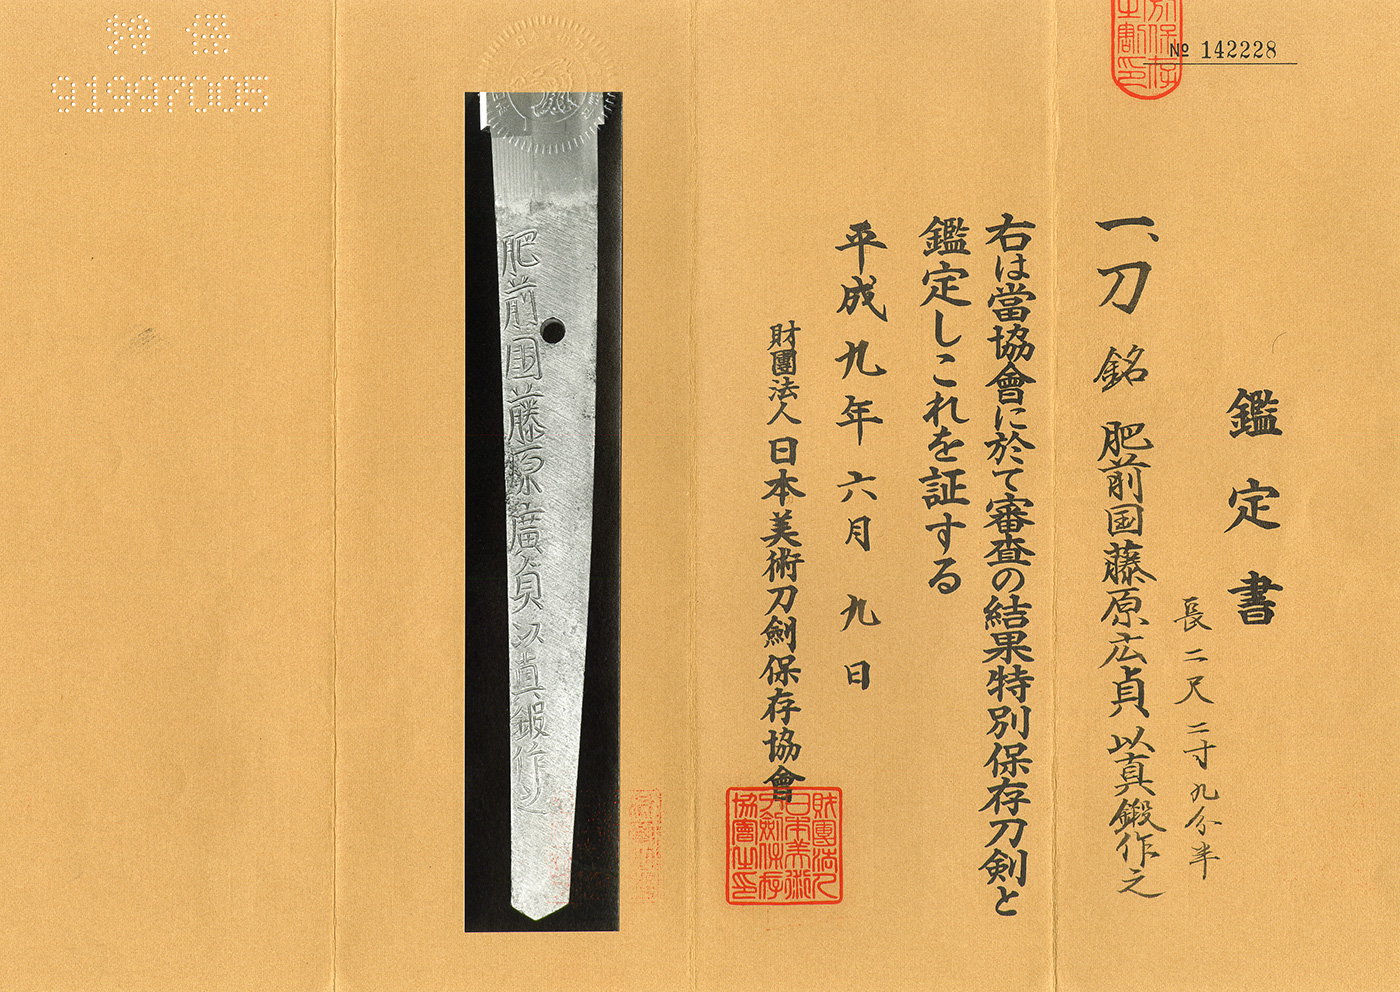 № 142228
鑑定書
一、刀 銘 肥前国藤原広貞以真鍛作之
長二尺二寸九分半
右は當協會に於て審査の結果特別保存刀剣と
鑑定しこれを証する
平成九年六月九日
財團法人日本美術刀劍保存協會
財團法人
日本美術
刀劍保存
協會之印
肥前國藤原廣貞以真鍛作之
特保
91997005